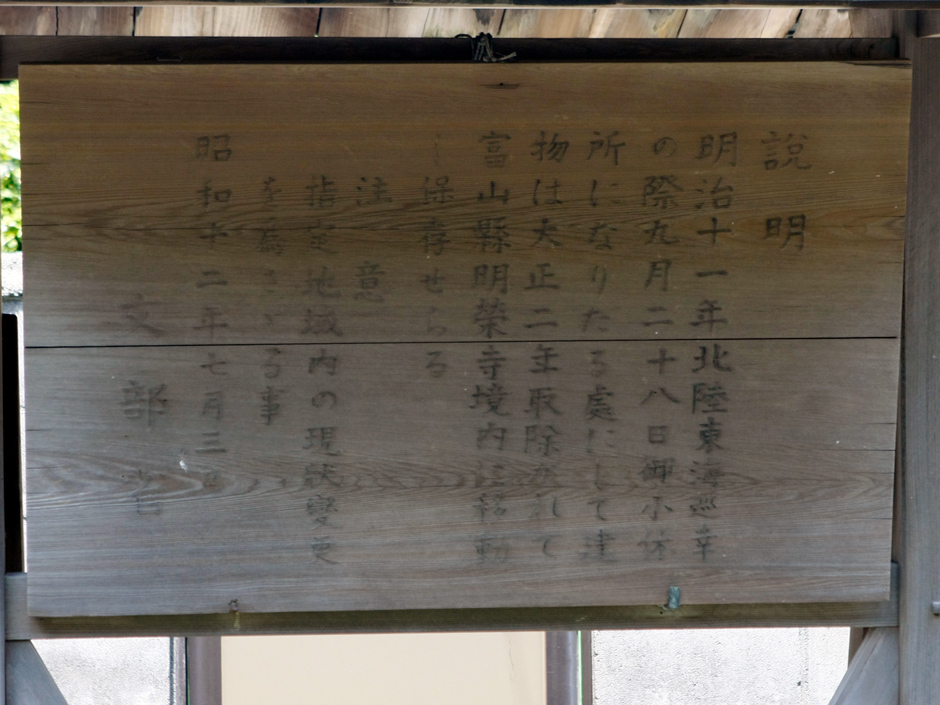 説明
明治十一年北陸東海巡幸
の際九月二十八日御小休
所になりたる處にして建
物は大正二年取除かれて
富山縣明榮寺境内に移動
し保存せらる
注意
指定地域内の現狀變更
を為さゞる事
昭和十二年七月三日
文部省